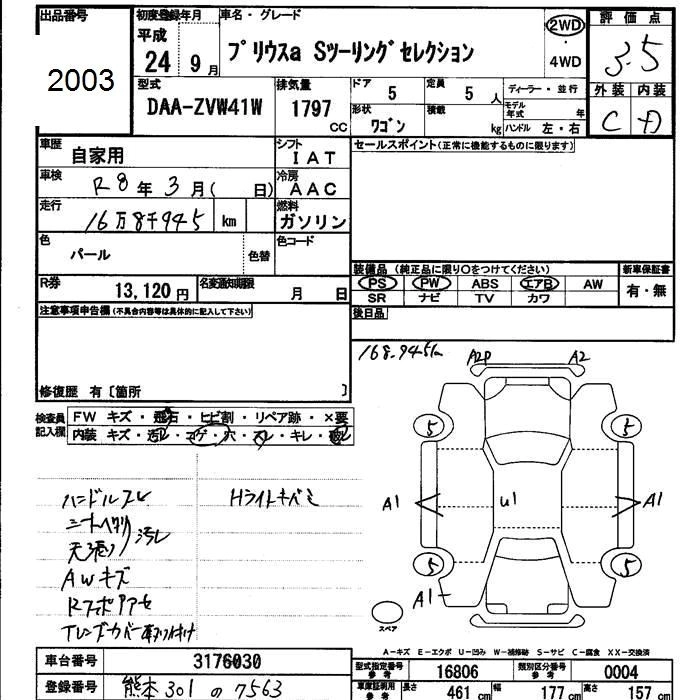 出品番号
2003
初度登録年月
平成
24 9月
車名・グレード
プリウスα Sツーリングセレクション
2WD
・
4WD
評価点
3.5
外装 内装
C D
型式
DAA-ZVW41W
排気量
1797
CC
ドア
5
定員
5 人
形状
ワゴン
積載
kg
ディーラー・並行
モデル年式 年
ハンドル 左・右
車歴
自家用
シフト
IAT
車検
R8年3月( 日)
冷房
AAC
走行
16万8千945 km
燃料
ガソリン
色
パール
色替
色コード
R券
13,120円
名変通知期限
月 日
セールスポイント(正常に機能するものに限ります)
装備品 (純正品に限り〇をつけてください)
PS PW ABS エアB AW
SR ナビ TV カワ
新車保証書
有・無
後日品
注意事項申告欄(不具合内容等は具体的に記入して下さい)
修復歴 有〔箇所 〕
検査員記入欄
FW キズ・飛石・ヒビ割・リペア跡・×要
内装 キズ・汚レ・コゲ・穴・スレ・キレ・
ハンドルスレ
シートヘタリ
天張り 汚レ
AWキズ
Hライトキバミ
168.945km
A2P A2
5 5
A1 U1 A1
5 5
A1
スペア
A-キズ E-エクボ U-凹み W-補修跡 S-サビ C-腐食 XX-交換済
車台番号
3176030
登録番号
熊本 301 の 7563
型式指定番号
参考
16806
類別区分番号
参考
0004
車庫証明用
参考
長さ
461 cm
幅
177 cm
高さ
157 cm